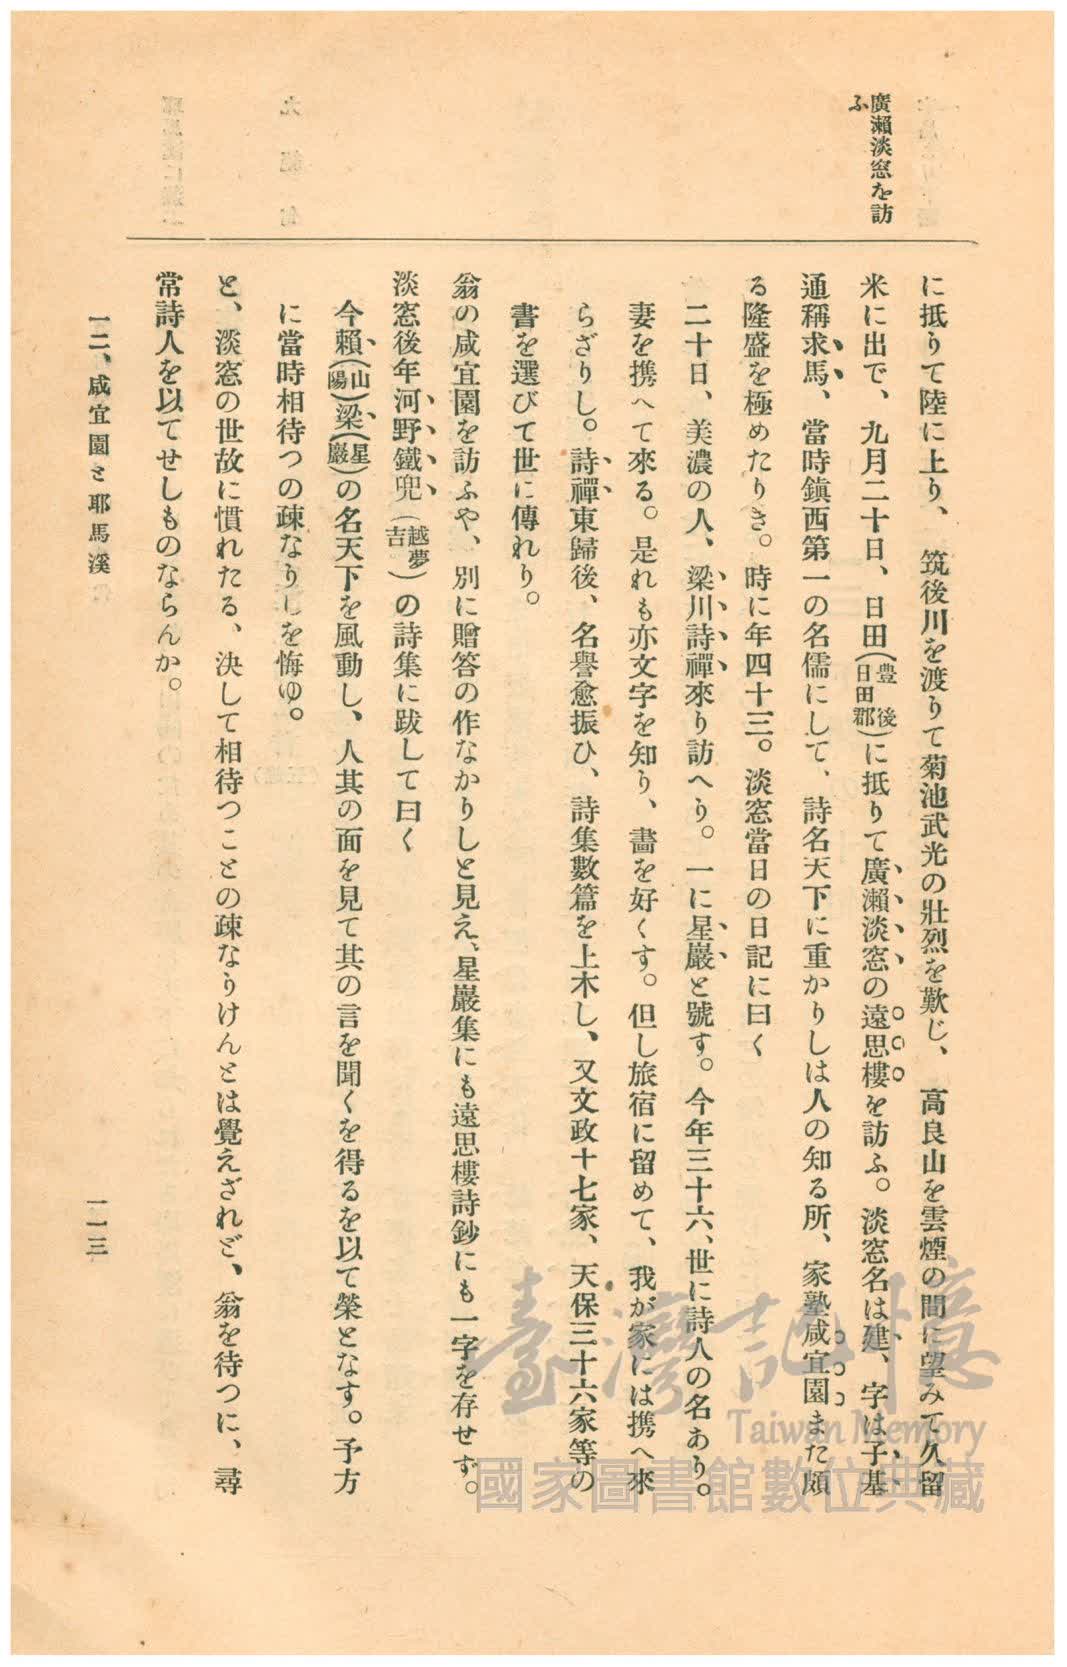 廣瀨淡窓を訪
ふ
に抵りて陸に上り、筑後川を渡りて菊池武光の壯烈を歎じ、高良山を雲煙の間に望みて久留
米に出で、九月二十日、日田(豊後日田郡)に抵りて廣瀨淡窓の遠思樓を訪ふ。淡窓名は建、字は子基
通稱求馬、當時鎭西第一の名儒にして、詩名天下に重かりしは人の知る所、家塾咸宜園また頗
る隆盛を極めたりき。時に年四十三。淡窓當日の日記に曰く
二十日、美濃の人、梁川詩禪來り訪へり。一に星巖と號す。今年三十六、世に詩人の名あり。
妻を携へて來る。是れも亦文字を知り、畵を好くす。但し旅宿に留めて、我が家には携へ來
らざりし。詩禪東歸後、名譽愈振ひ、詩集數篇を上木し、又文政十七家、天保三十六家等の
書を選びて世に傳れり。
翁の咸宜園を訪ふや、別に贈答の作なかりしと見え、星巖集にも遠思樓詩鈔にも一字を存せず。
淡窓後年河野鐵兜(越夢吉)の詩集に跋して曰く
今賴(山陽)梁(星巖)の名天下を風動し、人其の面を見て其の言を聞くを得るを以て榮となす。予方
に當時相待つの疎なりしを悔ゆ。
と、淡窓の世故に慣れたる、決して相待つことの疎なりけんとは覺えざれど、翁を待つに、尋
常詩人を以てせしものならんか。
一二、咸宜園と耶馬溪
一一三
臺灣記憶
Taiwan Memory
國家圖書館數位典藏